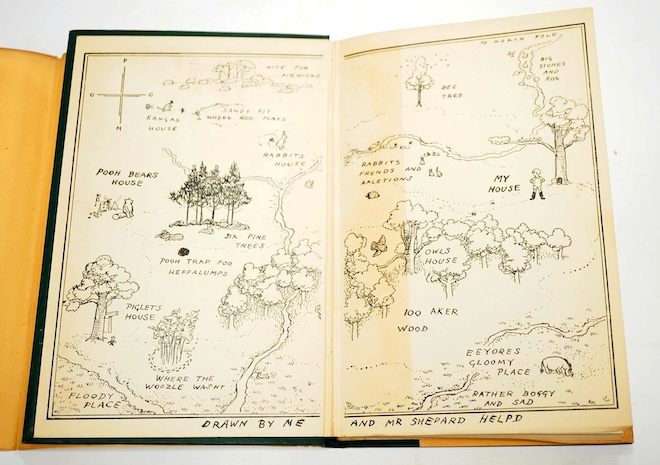 P
O O
H
NICE FOR
PICNICKS
KANGAS
HOUSE
SANDY PIT
WHERE ROO PLAYS
RABBITS
HOUSE
POOH BEARS
HOUSE
SIX PINE
TREES.
POOH TRAP FOR
HEFFALUMPS
PIGLETS
HOUSE
WHERE THE
WOOZLE WASNT
FLOODY
PLACE
DRAWN BY ME
TO NORTH POLE
BIG
STONES
AND
ROX
BEE
TREE
RABBITS
FRENDS AND
RALETIONS
MY
HOUSE
OWLS
HOUSE
100 AKER
WOOD
EEYORES
GLOOMY
PLACE
RATHER BOGGY
AND SAD
AND MR SHEPARD HELPD